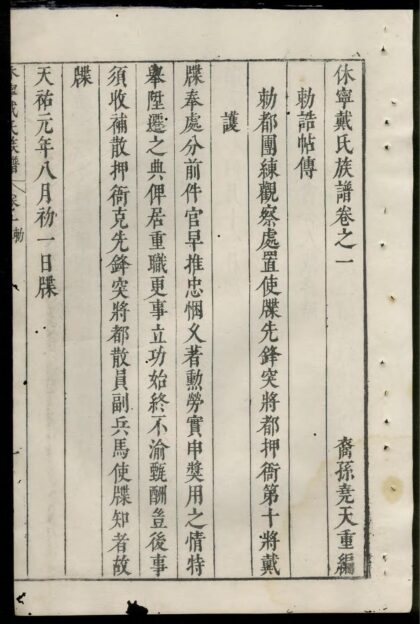 休寧戴氏族譜卷之一 裔孫堯天重編
勅誥帖傳
勅都團練觀察處置使牒先鋒突將都押衙第十將戴
護
牒奉處分前件官早推忠悃乂著勲勞實申奨用之情特
舉陞遷之典俾居重職更事立功始終不渝甄酬豈後事
須收補散押衙克先鋒突將都散員副兵馬使牒知者故
牒
天祐元年八月初一日牒
休寧戴氏族譜 卷一 勅